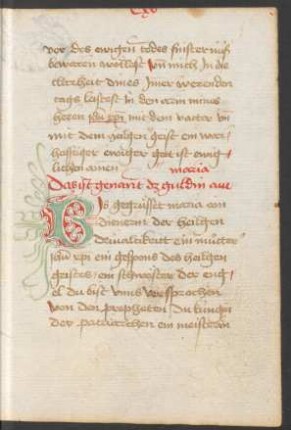 Cxv
vor des ewigen todes finsternúß
bewaren wöllest vn̄ mich in die
clarheit dines jmer werenden
tags leitest in den arm mines
heren jhū xpi mit dem vatter vn̄
mit dem heilgen geist ein war⸗
haftiger ewiger got ist ewig⸗
lichen amen maria
Das ist genant dz guldin aue
Bis gegrüsset maria ein
dienerin der heilgen
driualtikeit ein mutter
jhū xpi ein gespons des heilgen
geistes ein schwester der eng⸗
el du bist vnns versprochen
von den propheten du künigin
der patriarchen ein meisterin